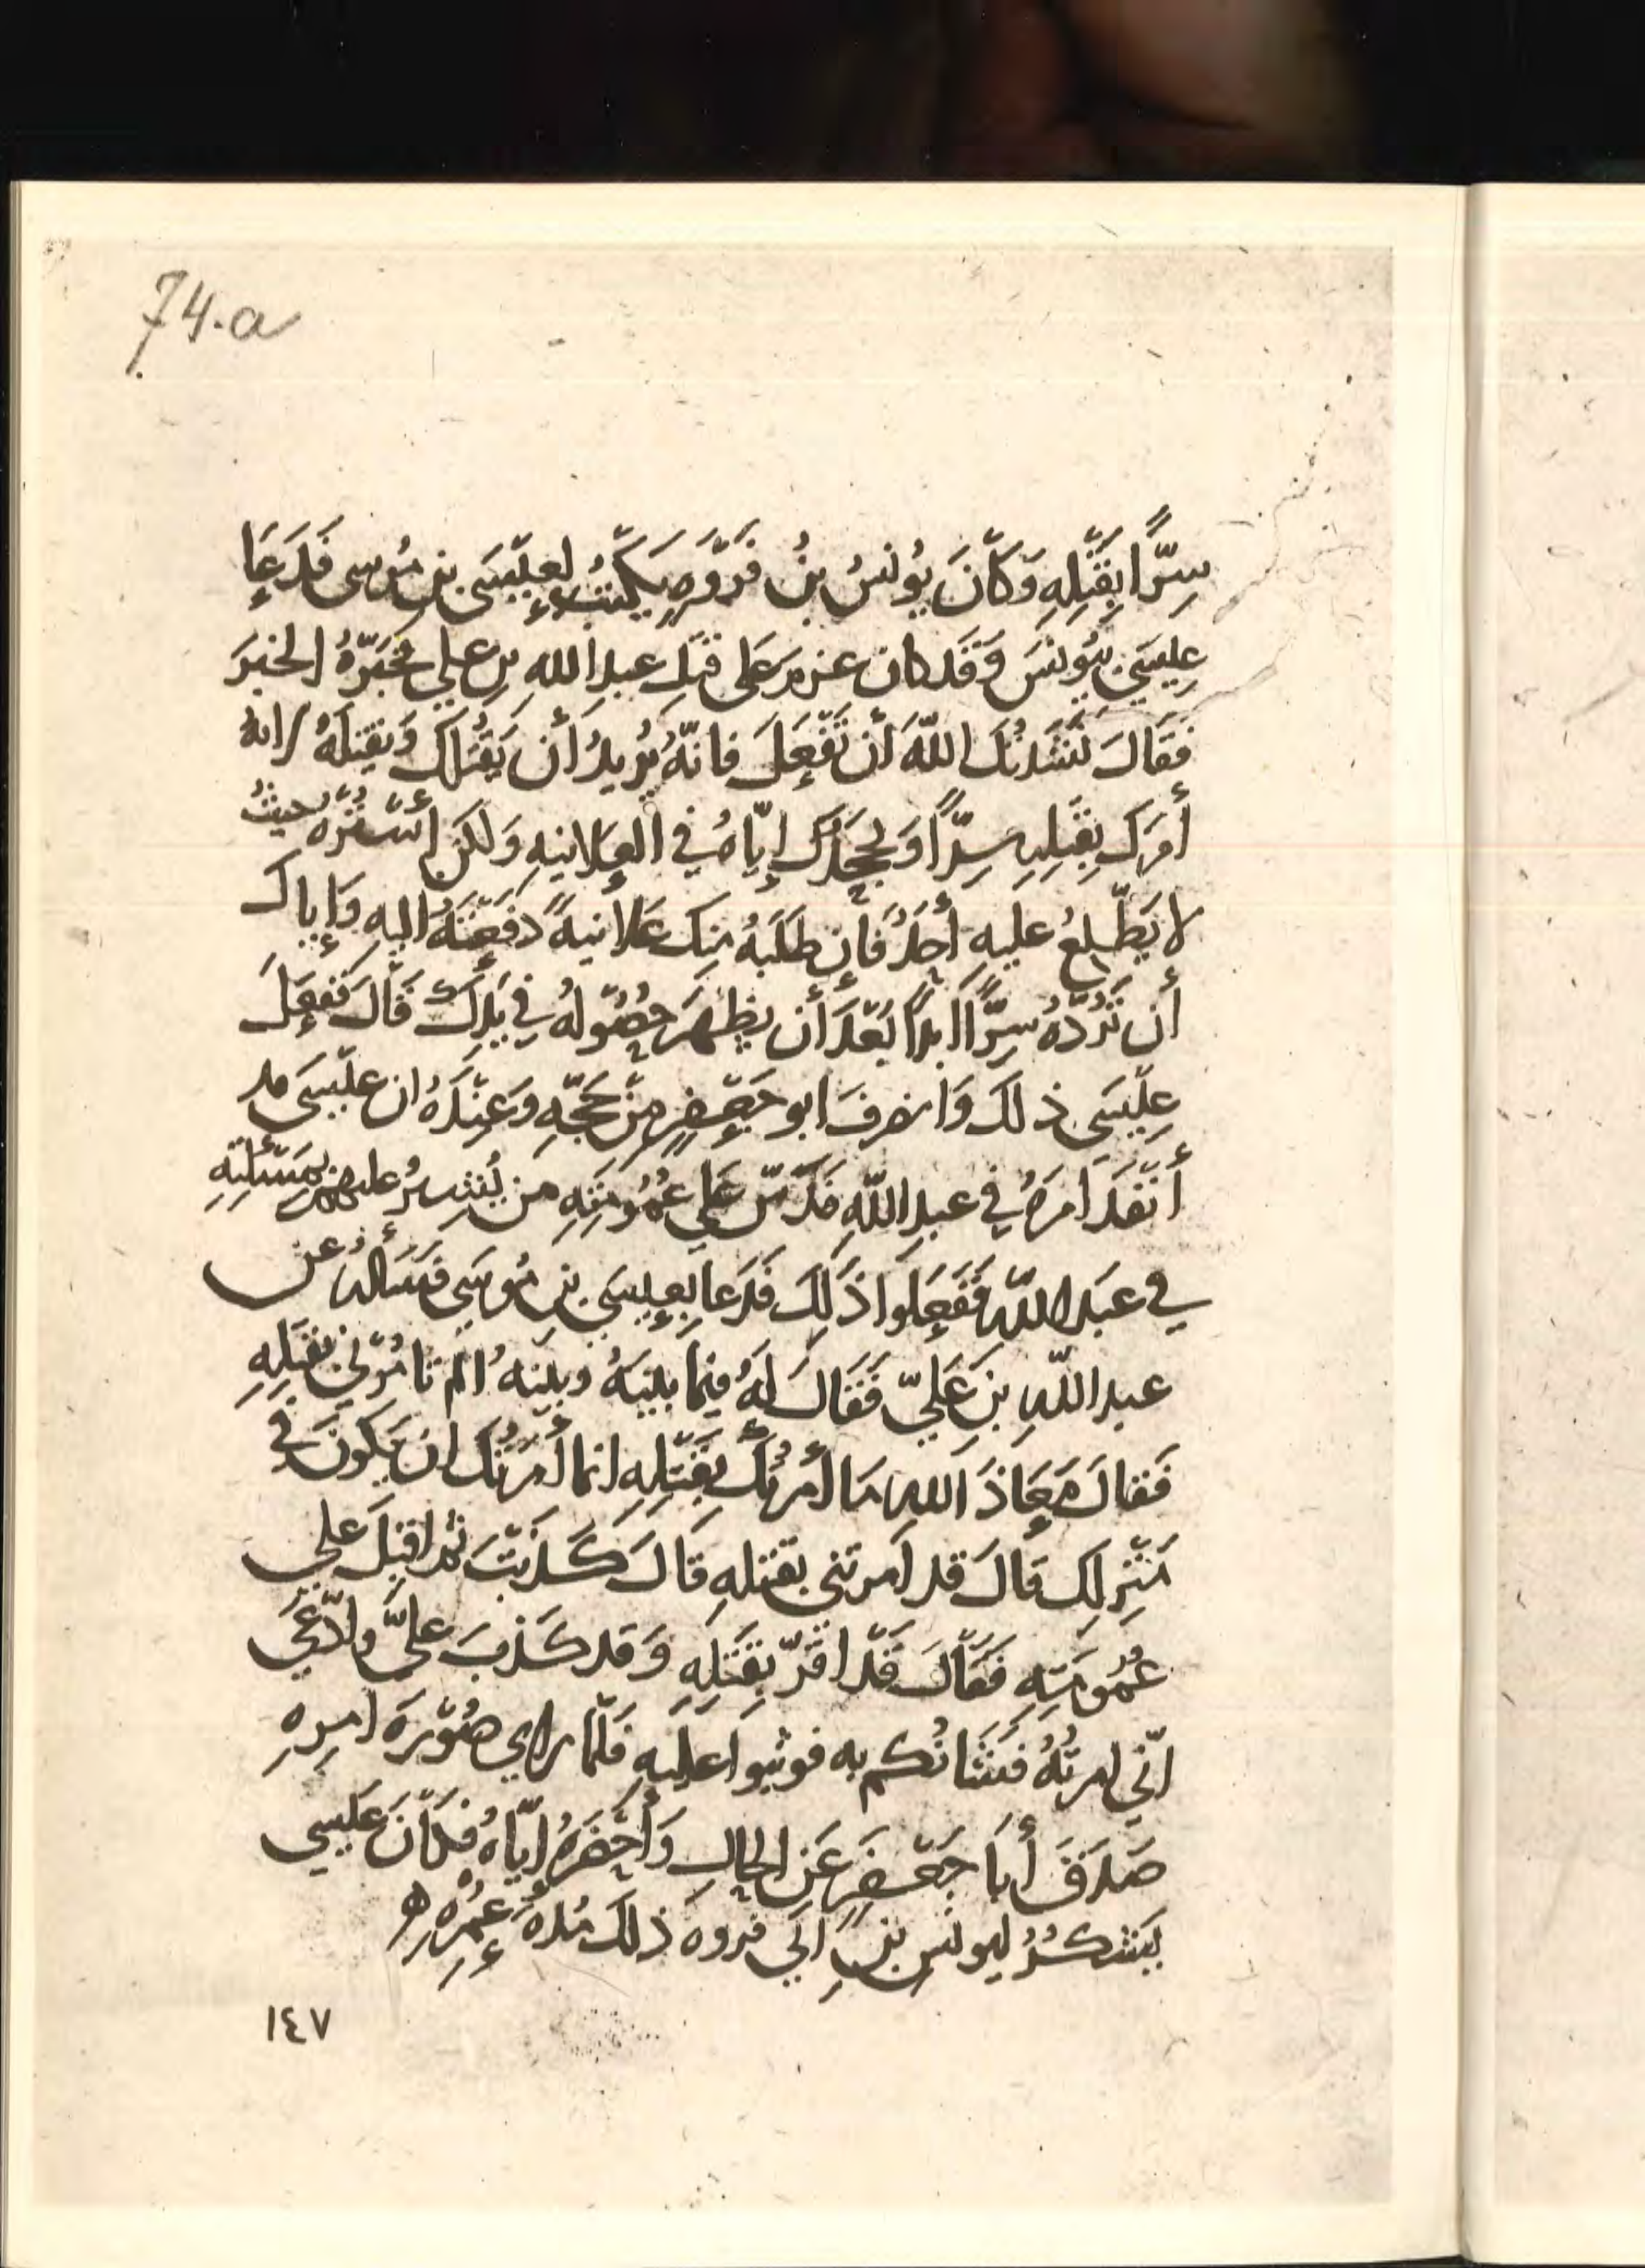 74.a
سِرًّا بِقَتْلِهِ وَكَانَ يُونسُ بنُ فَرْوَةٍ يَكْتُبُ لعِيْسَى بنِ مُوسى فَدَعَا
عِيسَى بيُونسَ وَقَد كان عزم عَلى قتلِ عبدِ اللهِ بنِ علي فخبَرَّهُ الخبَرَ
فقَالَ نَشَدتُكَ اللّهَ أن تَفْعَلَ فانّهُ يُريدُ أن يَقْتُلَكَ وَيقتلَهُ لانه
أمَرَكَ بِقَتْلِهِ سِرًّا وَيَجْحَدكَ إيّاهُ في العَلانيهِ وَلكن أُسْتُرْهُ حيثُ
لا يَطّلِعُ عليهِ أحَدٌ فَإن طَلَبَهُ مِنكَ عَلانيةً دَفَعْتَهُ اليهِ وَإياكَ
أن تَرُدَّهُ سِرًّا ابدًا بَعْدَ أن يظهَرَ حُصُولهُ في يَدِكَ قَالَ فَفعَلَ
عِيْسَى ذلكَ وَانصرفَ ابو جَعْفَرٍ مِنْ حَجّهِ وَعِنْدَهُ ان عِيْسَى قد
أنْفَذَ أمرَهُ في عبدِ اللّهِ فَدَسّ عَلي عُمُومَتِهِ من يُشِيرُ عليهم بِمَسْئَلتِهِ
في عبَد اللّهِ فَفَعَلوا ذَلِكَ فَدَعا بِعِيسَى بنِ مُوسَى فسَألهُ عن
عبد اللّهِ بنِ عَليّ فَقَالَ لهُ فيما بينهُ وبينهُ الم تامُرْني بقتلِهِ
فَقالَ مَعَاذَ اللهِ مَا أمرْتُكَ بِقَتْلِهِ انما أمَرْتُكَ ان يَكونَ في
مَنْزِلِكَ قالَ قد أمرتني بقتلهِ قالَ كَذَبْتَ ثم اقبلَ علي
عُمُومَتِهِ فَقَالَ قَدْ اقَرّ بِقتلِهِ وَقد كَذبَ عليّ وادّعَى
انّي امرتُهُ فشَانُكم به فوثبوا عليهِ فَلَمّا راي صُوْرَةَ امرِهِ
صَدَقَ أبَا جَعْفَرٍ عَنِ الحالِ وَأحْضَرَهُ ايّاهُ فكَانَ عِيسى
يَشكُرُ ليونسَ بنِ ابي فروه ذلكَ مُدهَ عُمرِهِ
١٤٧